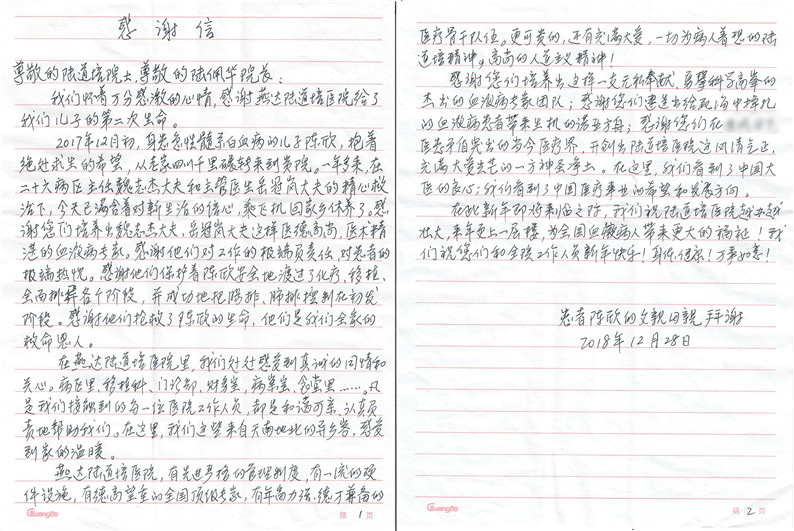 感谢信
尊敬的陆道培院士、尊敬的陆佩华院长：
我们怀着万分感激的心情，感谢燕达陆道培医院给了
我们儿子的第二次生命。
2017年12月初，身患急性髓系白血病的儿子陈欣，抱着
绝处求生的希望，从老家四川千里辗转来到贵院。一年多来，在
二十六病区主任魏志杰大夫和主管医生吕冠岗大夫的精心救
治下，今天已满含着对新生活的信心，乘飞机回家乡休养了。感
谢你们培养出魏志杰大夫、大夫这样医德高尚，医术精
湛的血液病专家，感谢他们对工作的极端负责任，对患者的
极端热忱。感谢他们保护着陈欣安全地渡过了化疗、移植、
全面排异各个阶段，并成功地把肠排、肺排控制在初发
阶段。感谢他们抢救了陈欣的生命，他们是我们全家的
救命恩人。
在燕达陆道培医院里，我们时时感受到真诚的同情和
关心。病区里、移植科、门诊部、财务室、病案室、食堂里……凡
是我们接触到的每一位医院工作人员，都是和蔼可亲、认真负
责地帮助我们。在这里，我们这些来自天南地北的异乡客，感受
到家的温暖。
燕达陆道培医院，有先进严格的管理制度，有一流的硬
件设施，有德高望重的全国顶级专家，有年富力强、德才兼备的
Guangbo
第 1 页
医疗骨干队伍。更可贵的，还有充满大爱、一切为病人着想的陆
道培精神，高尚的人道主义精神！
感谢您们培养出这样一支无私奉献、勇攀科学高峰的
杰出的血液病专家团队；感谢您们建造出给死海中挣扎
的血液病患者带来生机的诺亚方舟；感谢您们在
医患矛盾突出的当今医疗界，开创出陆道培医院这风清气正，
充满大爱光芒的一方神圣净土。在这里，我们看到了中国大
医的良心；我们看到了中国医疗事业的希望和发展方向。
在此新年即将来临之际，我们祝陆道培医院越办越
壮大，来年更上一层楼，为全国血液病人带来更大的福祉！我
们祝您们和全院工作人员新年快乐！身体健康！万事如意！
患者陈欣的父亲母亲 拜谢
2018年12月28日
Guangbo
第 2 页